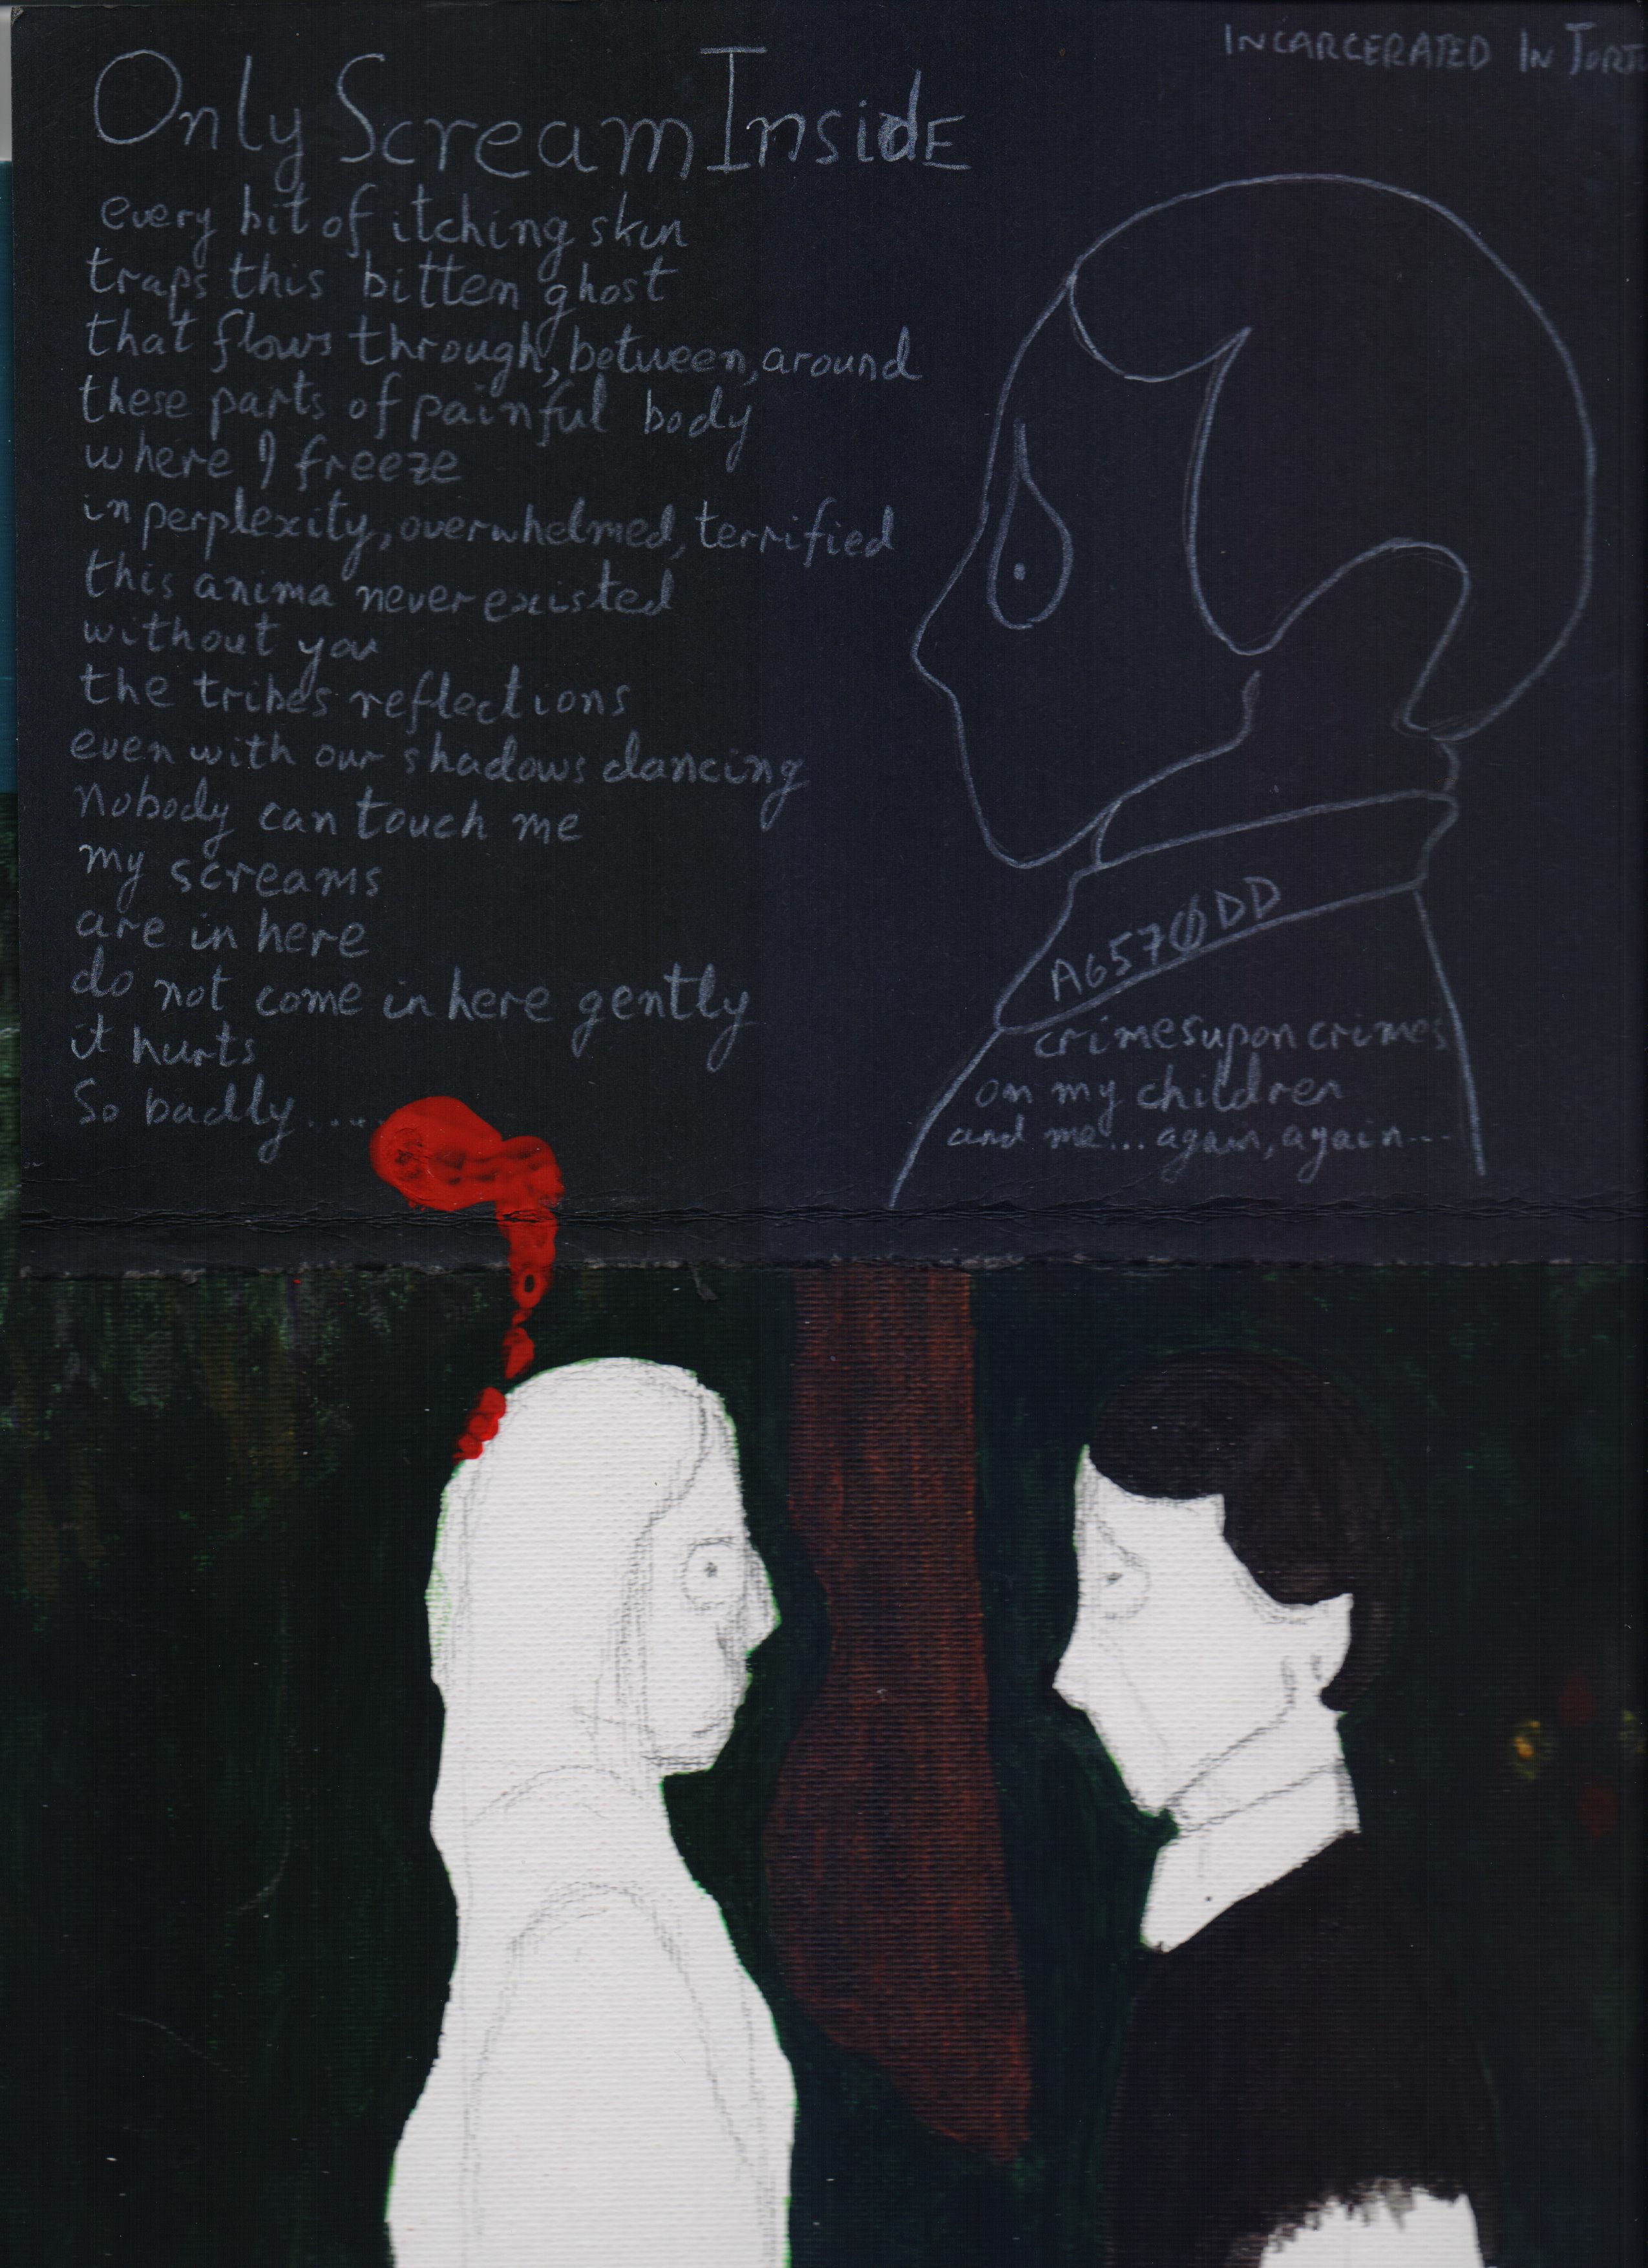 INCARCERATED IN
Only Scream InsidE
every bit of itching skin
traps this bitten ghost
that flows through, between, around
these parts of painful body
where I freeze
in perplexity, overwhelmed, terrified
this anima never existed
without you
the tribes reflections
even with our shadows dancing
nobody can touch me
my screams
are in here
do not come in here gently
it hurts
So badly....
A6570DD
crimes upon crimes
on my children
and me... again, again...